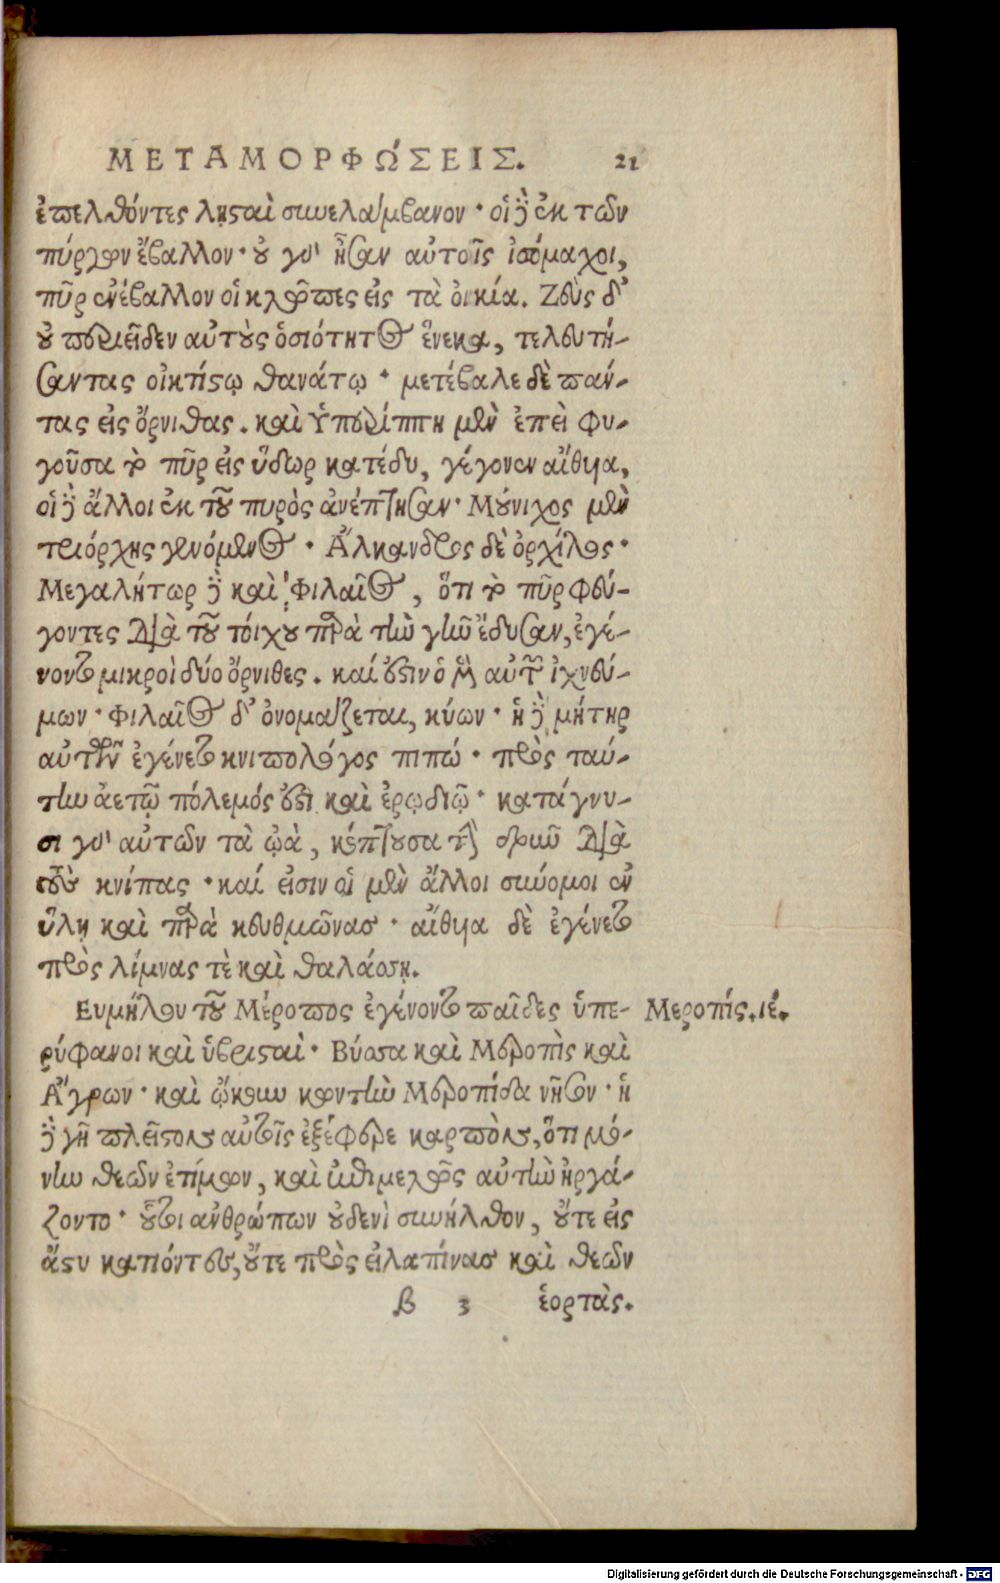 ΜΕΤΑΜΟΡΦΩ΄ΣΕΙΣ. 21
ἐπελθόντες λῃσταὶ συνελάμβανον· οἱ δὲ ἐκ τῶν
πύργων ἔβαλλον· οὐ γὰρ ἦσαν αὐτοῖς ἰσόμαχοι,
πῦρ ἐνέβαλλον οἱ κλῶπες εἰς τὰ οἰκία. Ζεὺς δ'
οὐ περιεῖδεν αὐτοὺς ὁσιότητος ἕνεκα, τελευτή-
σαντας οἰκτίστῳ θανάτῳ· μετέβαλε δὲ πάν-
τας εἰς ὄρνιθας. καὶ Ὑπερίππη μὲν ἐπεὶ φυ-
γοῦσα τὸ πῦρ εἰς ὕδωρ κατέδυ, γέγονεν αἴθυια,
οἱ δὲ ἄλλοι ἐκ τοῦ πυρὸς ἀνέπτησαν· Μούνιχος μὲν
τριόρχης γενόμενος· Ἄλκανδρος δὲ ὀρχίλος·
Μεγαλήτωρ δὲ καὶ Φιλαῖος, ὅτι τὸ πῦρ φεύ-
γοντες διὰ τοῦ τοίχου παρὰ τὴν γῆν ἔδυσαν, ἐγέ-
νοντο μικροὶ δύο ὄρνιθες. καί ἐστιν ὁ μὲν αὐτῶν ἰχνεύ-
μων· Φιλαῖος δ' ὀνομάζεται, κύων· ἡ δὲ μήτηρ
αὐτῶν ἐγένετο κνιπολόγος πιπώ· πρὸς ταύ-
την ἀετῷ πόλεμός ἐστι καὶ ἐρῳδιῷ· κατάγνυ-
σι γὰρ αὐτῶν τὰ ᾠὰ, κόπτουσα τὴν δρῦν διὰ
τοὺς κνίπας· καί εἰσιν οἱ μὲν ἄλλοι σύνομοι ἐν
ὕλῃ καὶ παρὰ κευθμῶνας· αἴθυια δὲ ἐγένετο
πρὸς λίμνας τὲ καὶ θαλάσσῃ.
Ευμήλου τοῦ Μέροπος ἐγένοντο παῖδες ὑπε- Μεροπίς. ιε΄.
ρύφανοι καὶ ὑβρισταὶ· Βύασσα καὶ Μεροπὶς καὶ
Ἄγρων· καὶ ᾤκουν Κῶν τὴν Μεροπίδα νῆσον· ἡ
δὲ γῆ πλείστους αὐτοῖς ἐξέφερε καρποὺς, ὅτι μό-
νην θεῶν ἐτίμων, καὶ ἐπιμελῶς αὐτὴν ἠργά-
ζοντο· οὗτοι ἀνθρώπων οὐδενὶ συνήλθον, οὔτε εἰς
ἄστυ κατιόντες, οὔτε πρὸς εἰλαπίνας καὶ θεῶν
β 3 ἑορτὰς.
Digitalisierung gefördert durch die Deutsche Forschungsgemeinschaft - DFG